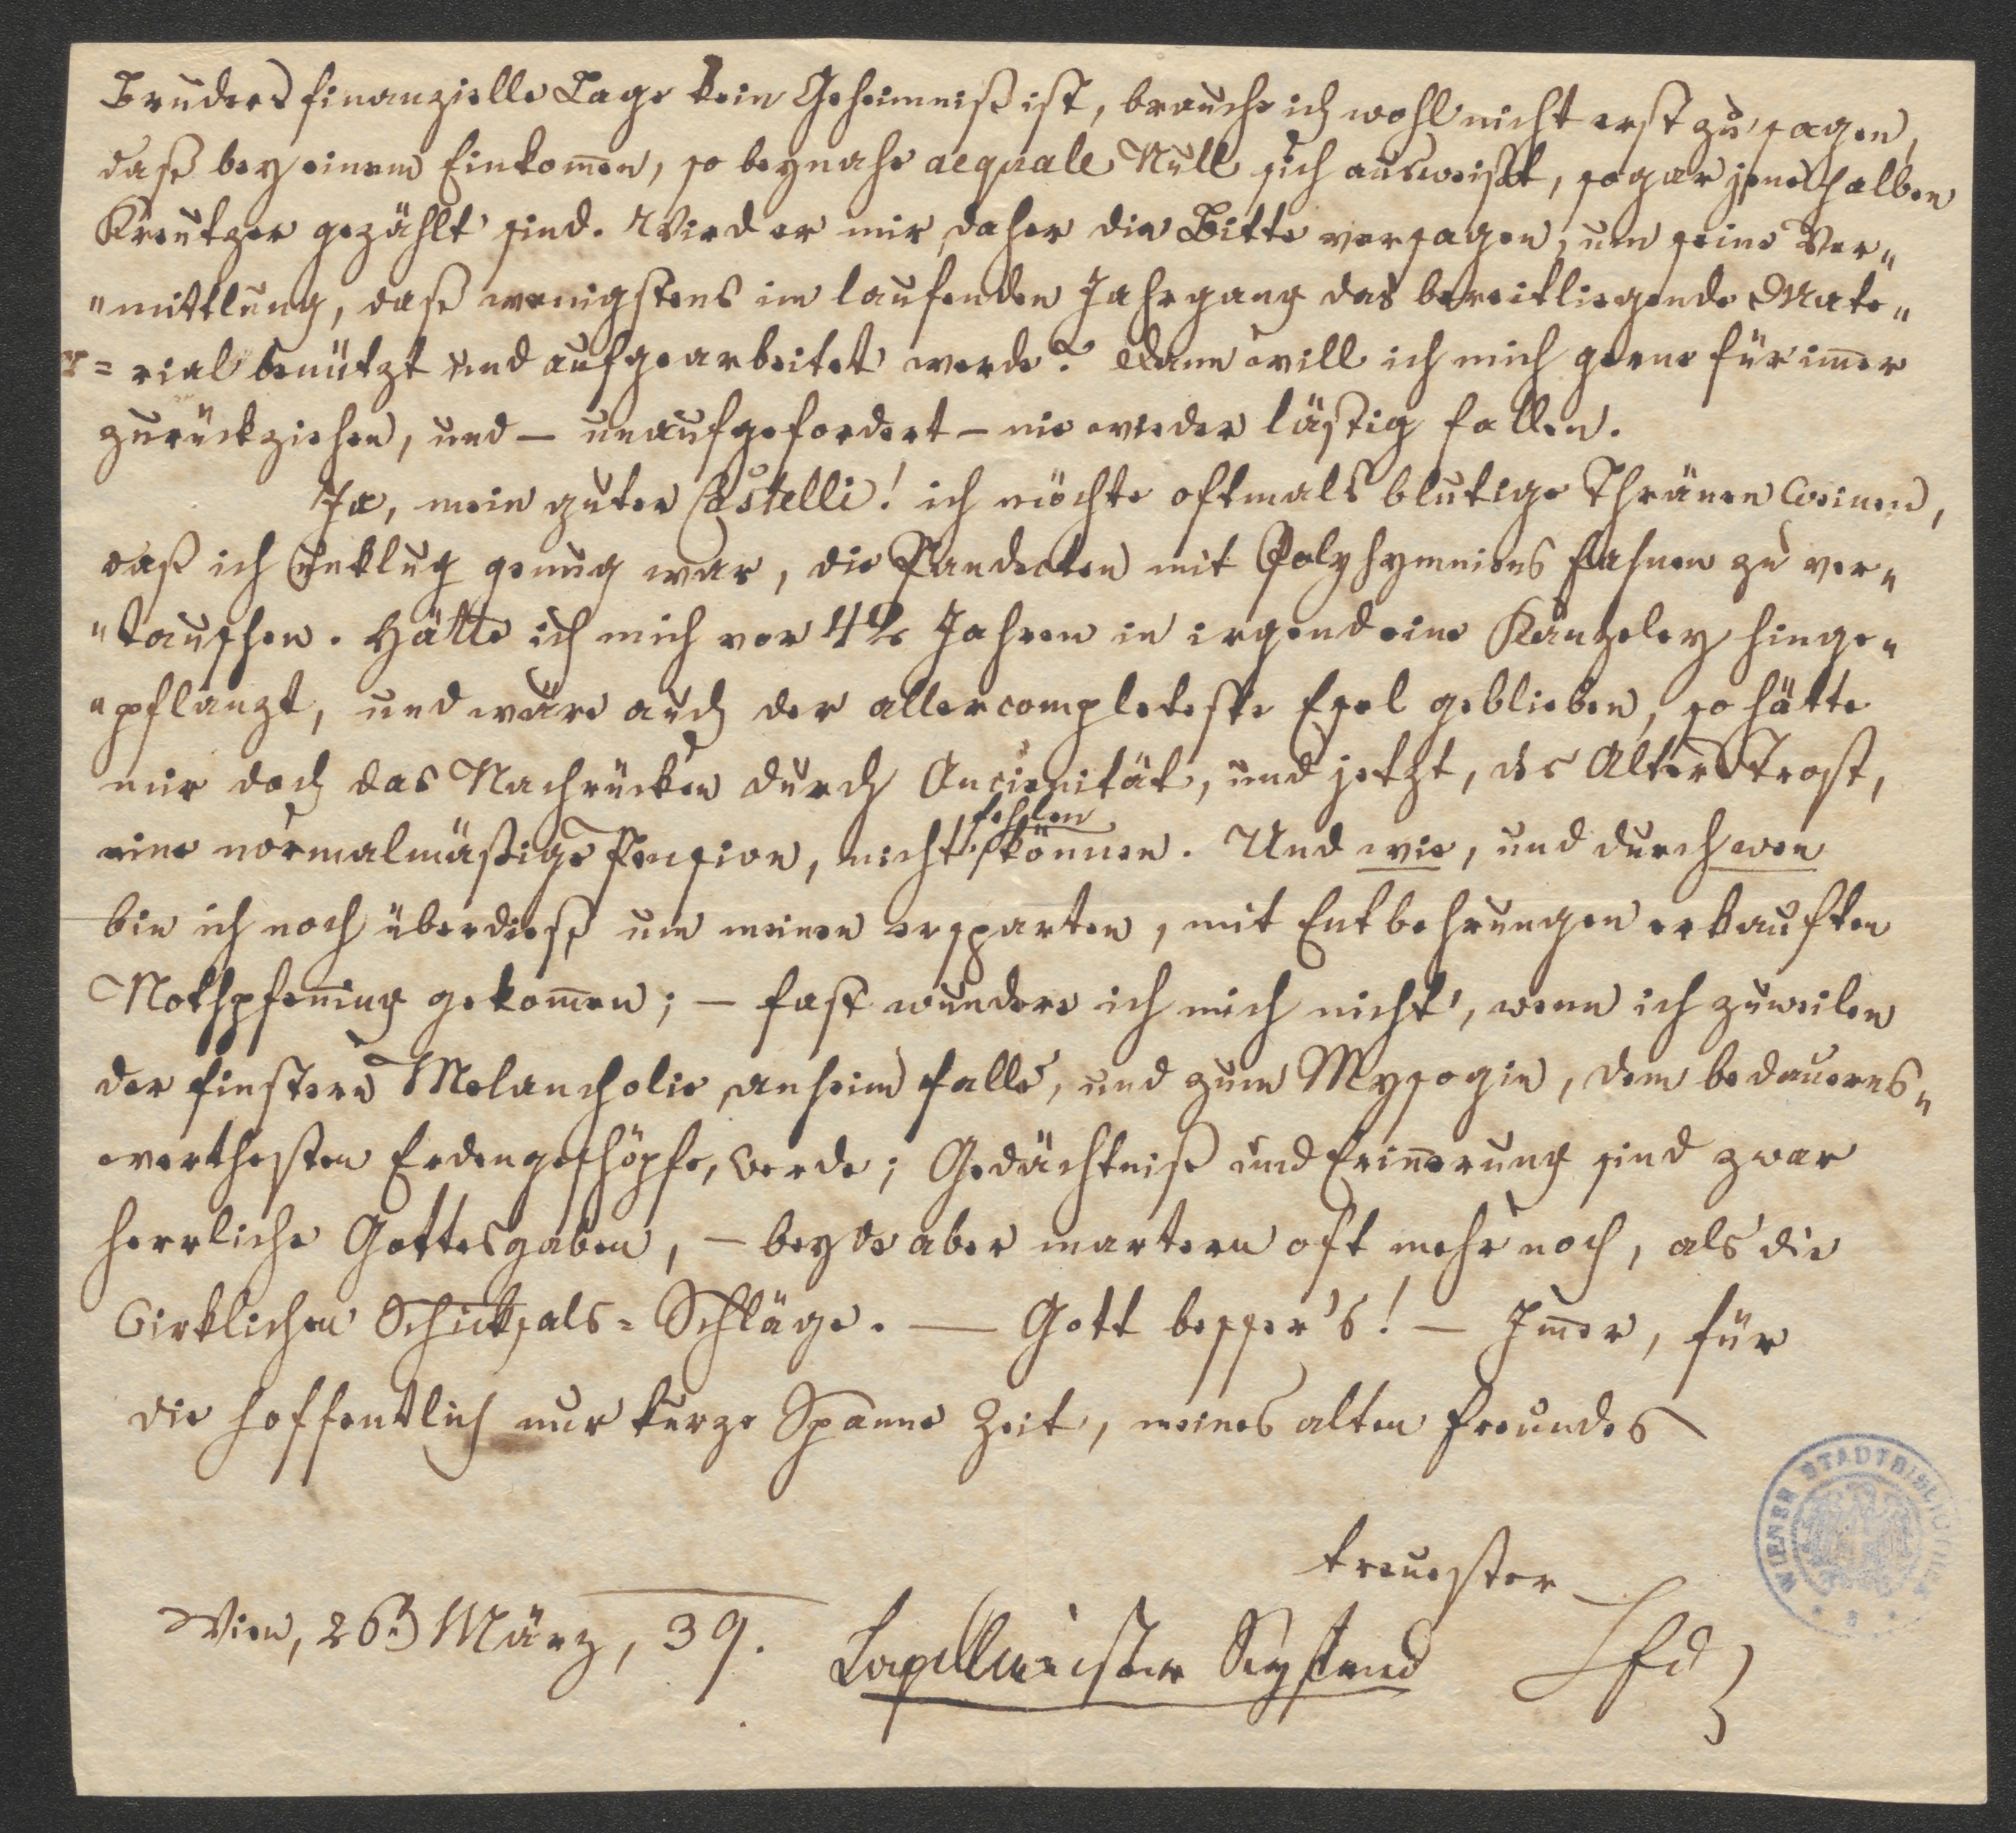 Bruders finanzielle Lage kein Geheimniß ist, brauche ich wohl nicht erst zu sagen,
daß bey einem Einkom̅en, so beynahe aequale Null sich ausweißt, sogar jene halben
Kreutzer gezählt sind. Wird er mir daher die Bitte versagen, um seine Ver„
„mittlung, daß wenigstens im laufenden Jahrgang das bereitliegende Mate„
= rial benützt und aufgearbeitet werde? Dann will ich mich gerne für im̅er
zurückziehen, und – unaufgefordert – nie wieder lästig fallen.
Ja, mein guter Castelli! ich möchte oftmals blutige Thränen weinen,
daß ich unklug genug war, die Pandecten mit Polyhymniens Fahnen zu ver„
„tauschen. Hätte ich mich vor 4 Jahren in irgend eine Kanzeley hinge„
„pflanzt, und wäre auch der allercompleteste Esel geblieben, so hätte
mir doch das Nachrücken durch Ancienität, und jetzt, des Alters Trost,
eine normalmäßige Pension, nicht fehlen können. Und wie, und durch wen
bin ich noch überdieß um meinen ersparten, mit Entbehrungen erkauften
Nothpfen̅ing gekom̅en; – fast wundere ich mich nicht, wenn ich zuweilen
der finstern Melancholie anheim falle, und zum Mysogin, dem bedauerns„
werthesten Erdengeschöpfe, werde; Gedächtniß und Erin̅erung sind zwar
herrliche Gottesgaben, – beyde aber martern oft mehr noch, als die
wirklichen Schicksals = Schläge. — Gott besser's! – Im̅er, für
die hoffentlich nur kurze Spanne Zeit, meines alten Freundes
treuester
Wien, 26 März, 39. Capellmeister Seyfried
WIENER STADTBIBLIOTHEK